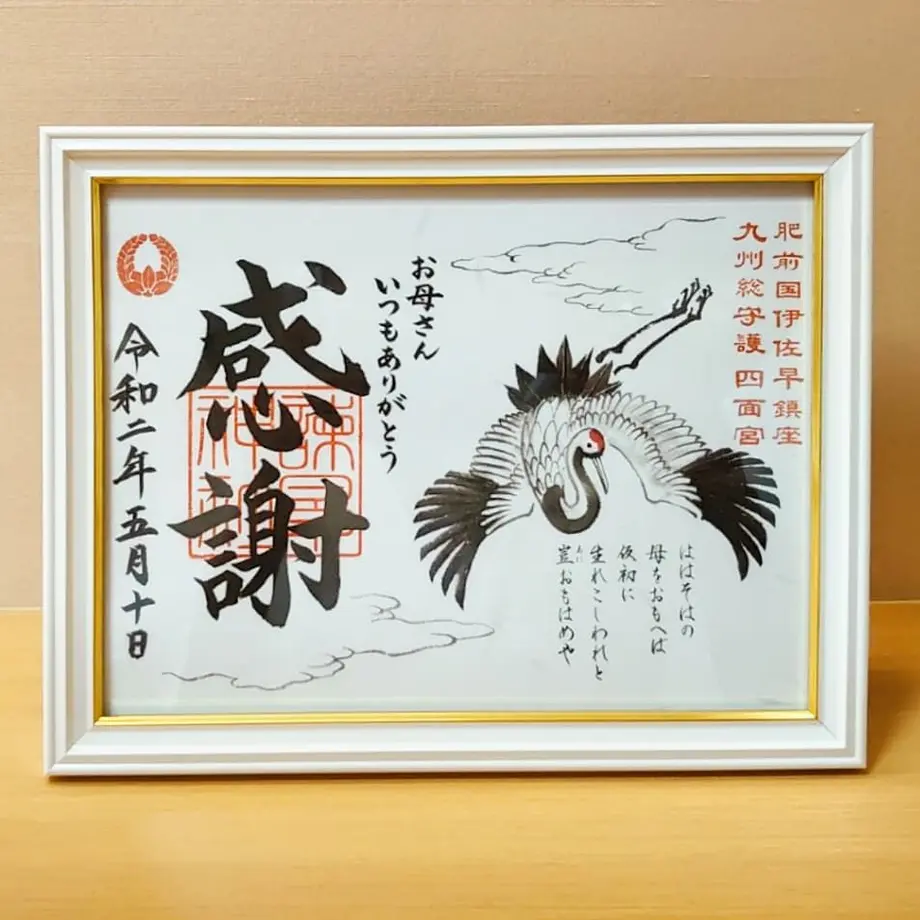 肥前国伊佐早鎮座
九州総守護 四面宮
ははそはの
母をおもへば
仮初に
生れこしわれと
豈おもはめや
あに
お母さん
いつもありがとう
感謝
諫早
神社
令和二年五月十日